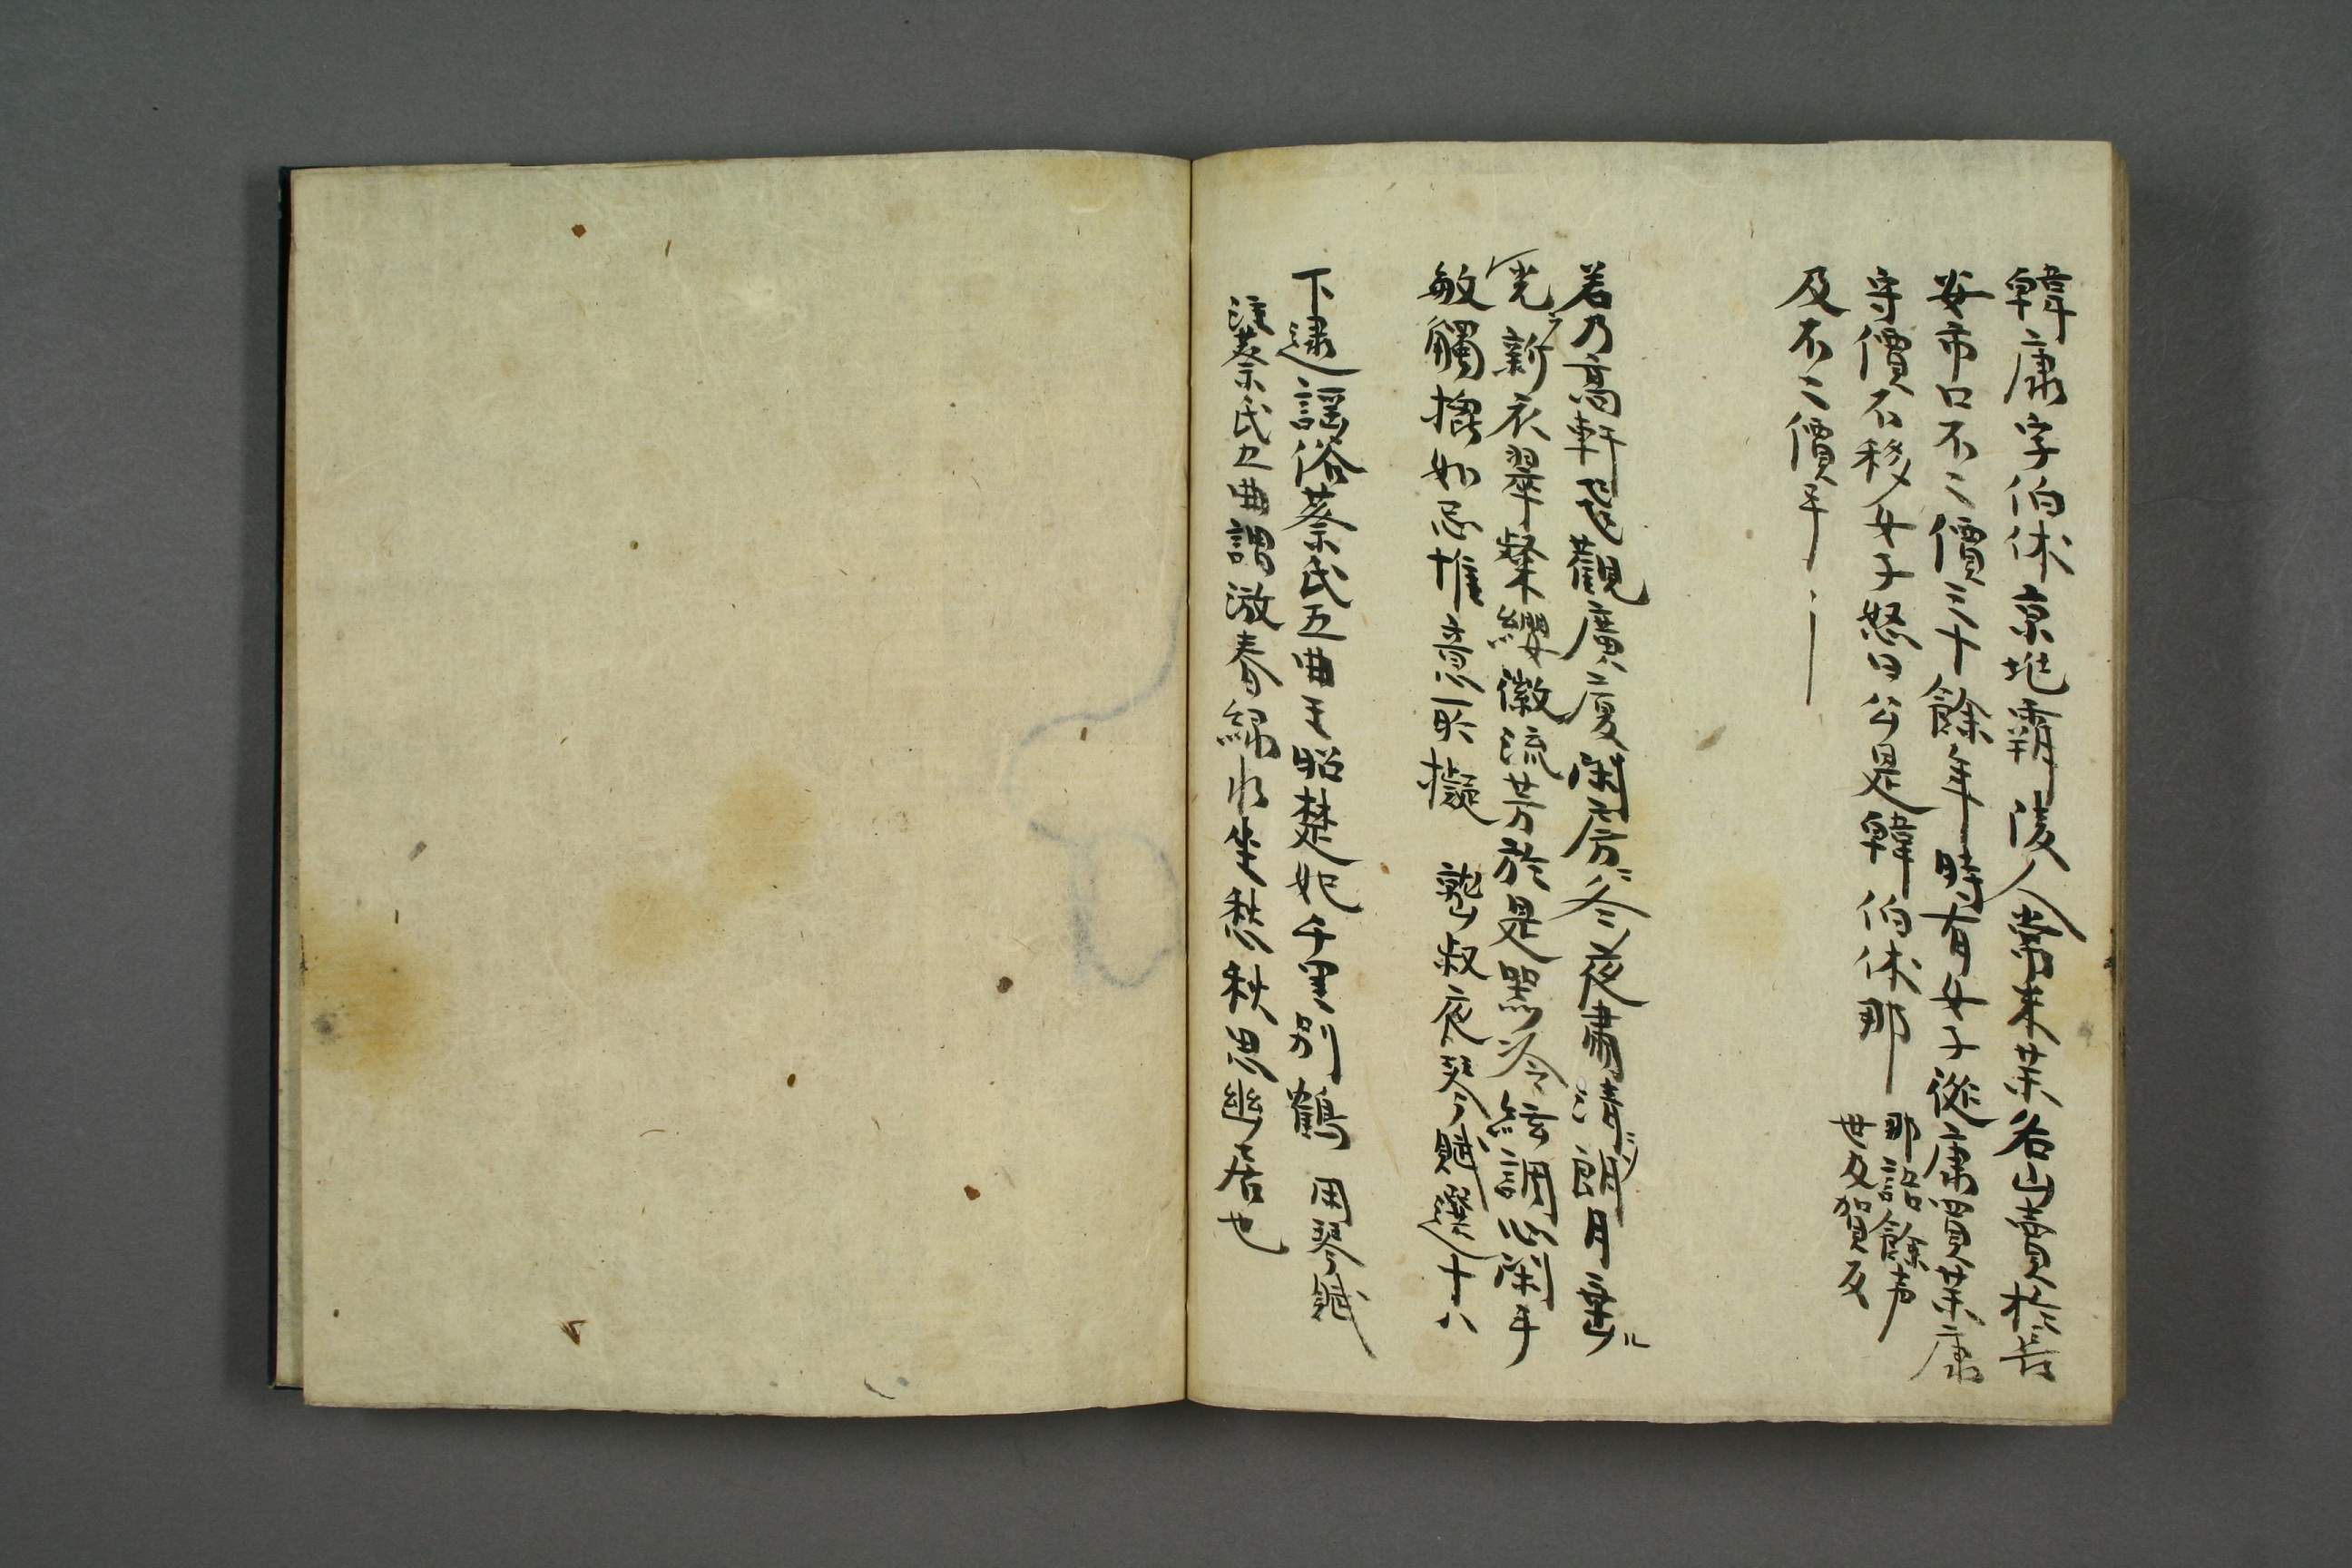 韓康字伯休京地霸陵人常来茶名山賣於長
安市口不二價三十餘年時有女子從康買茶康
守價不移女子怒曰公是韓伯休那
那語餘声
女及賀反
及不二價乎
若乃高軒飛觀廣厦閑房冬夜肅清朗月垂ル
光新衣翠粲纓徽流芳於是器冷絃調心閑手
敏觸㨶如志惟意所擬 嵆叔夜琴賦選十八
下逮謡俗蔡氏五曲王昭楚妃千里別鶴 同琴賦
注蔡氏五曲謂遊春緑水坐愁秋思幽居也